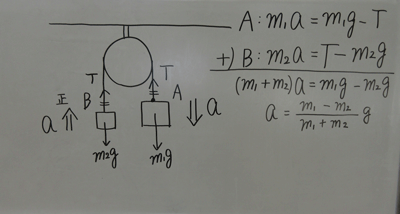 A: m₁a = m₁g - T
+) B: m₂a = T - m₂g
(m₁+m₂)a = m₁g - m₂g
a = \frac{m₁ - m₂}{m₁ + m₂} g
T T
正 B A
a a
m₂g m₁g